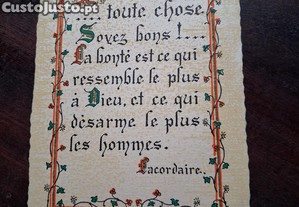 CustoJusto.pt
.... toute chose.
Soyez bons !....
La bonté est ce qui
ressemble le plus
à Dieu, et ce qui
désarme le plus
les hommes.
Lacordaire..